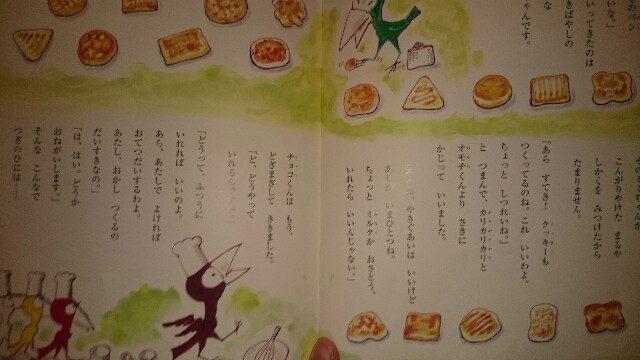 いな。」
いってきたのは
きばやしの
ちゃんです。
こんがりやけた まるや
しかくを みつけたから
たまりません。
「あら すてき! クッキーも
つくってるのね。これ いいわよ。
ちょっと しつれいね。」
と つまんで、カリカリカリと
オモチくんより さきに
かじって いいました。
やきぐあいは いいけど
あじは いまひとつね。
ちょっと ミルクか おさとう、
いれたら いいんじゃない。」
チョコくんは もう、
どぎまぎして ききました。
「ど、どうやって
いれるし
「どうって、ふつうに
いれれば いいのよ。
あら、あたしで よければ
おてつだいするわよ。
あたし、おかし つくるの
だいすきなの。」
「は、はい。どうか
おねがいします。」
そんな こんなで
つぎのひには――